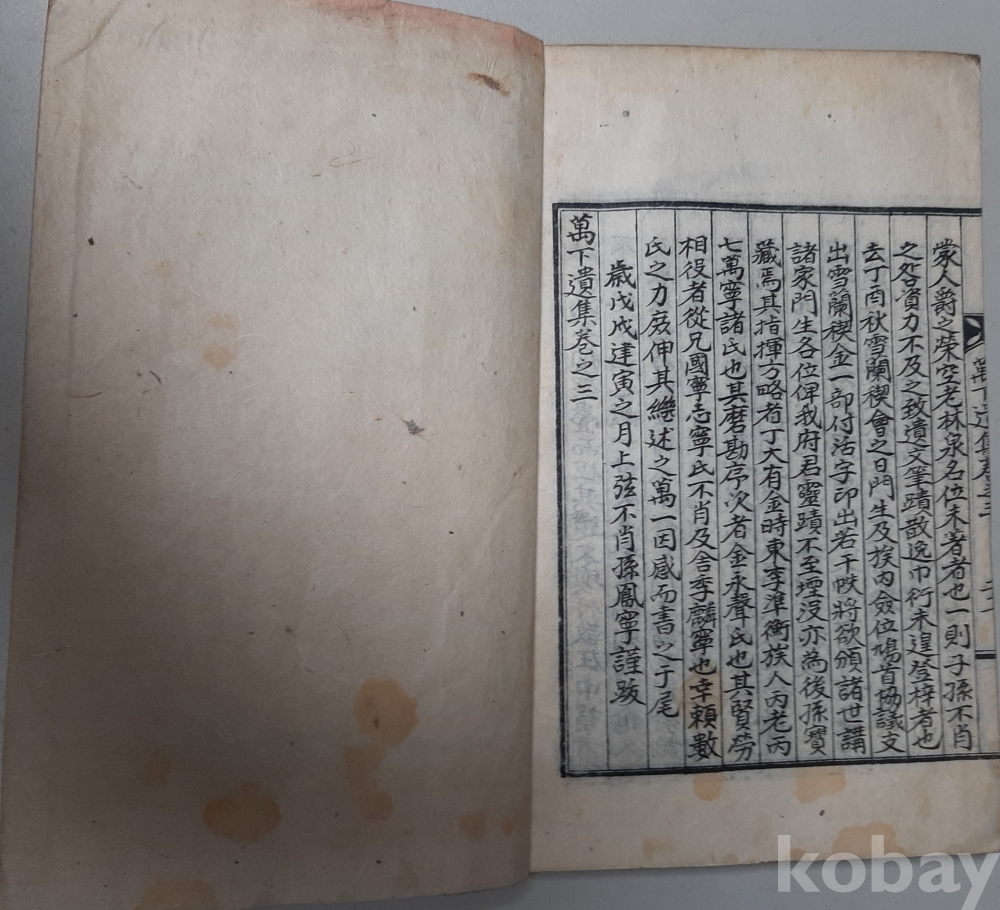 蒙人爵之榮空老林泉名位未著者也一則子孫不肖
之咎資力不及之致遺文筆蹟散逸巾衍未遑登梓者也
去丁酉秋雪蘭稧會之日門生及族內僉位鳩首協議支
出雪蘭稧金一部付活字印出若干帙將欲頒諸世講
諸家門生各位俾我府君靈蹟不至堙沒亦為後孫寶
藏焉其指揮方略者丁大有金時東李準衡族人丙老丙
七萬寧諸氏也其磨勘序次者金永聲氏也其賢勞
相役者從兄國寧志寧氏不肖及舍季麟寧也幸賴數
氏之力庶伸其繼述之萬一因感而書之于尾
歲戊戌建寅之月上弦不肖孫鳳寧謹跋
萬下遺集卷之三
萬下遺集卷之三
kobay